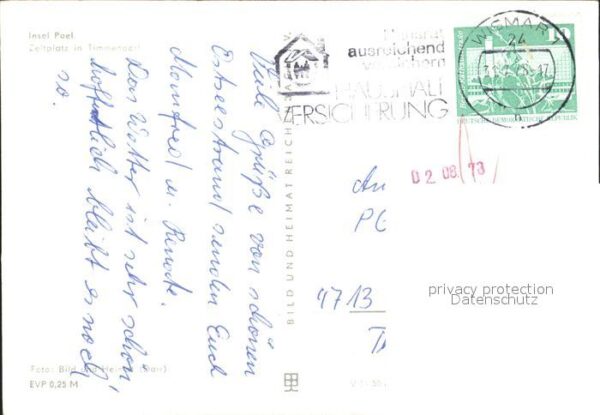 Insel Poel
Zeltplatz in Timmendorf
Viele Grüße vom schönen
Ostseestrand senden Euch
Manfred u. Renate.
Das Wetter ist sehr schön,
hoffentlich bleibt es noch
so.
Foto: Bild und Heimat (Darr)
EVP 0,25 M
BILD UND HEIMAT REICHENBACH
Hausrat
ausreichend
versichern
HAUSHALT
VERSICHERUNG
WISMAR
24
h
10
DEUTSCHE DEMOKRATISCHE REPUBLIK
02 08. 73
An
PG
4713
privacy protection
Datenschutz